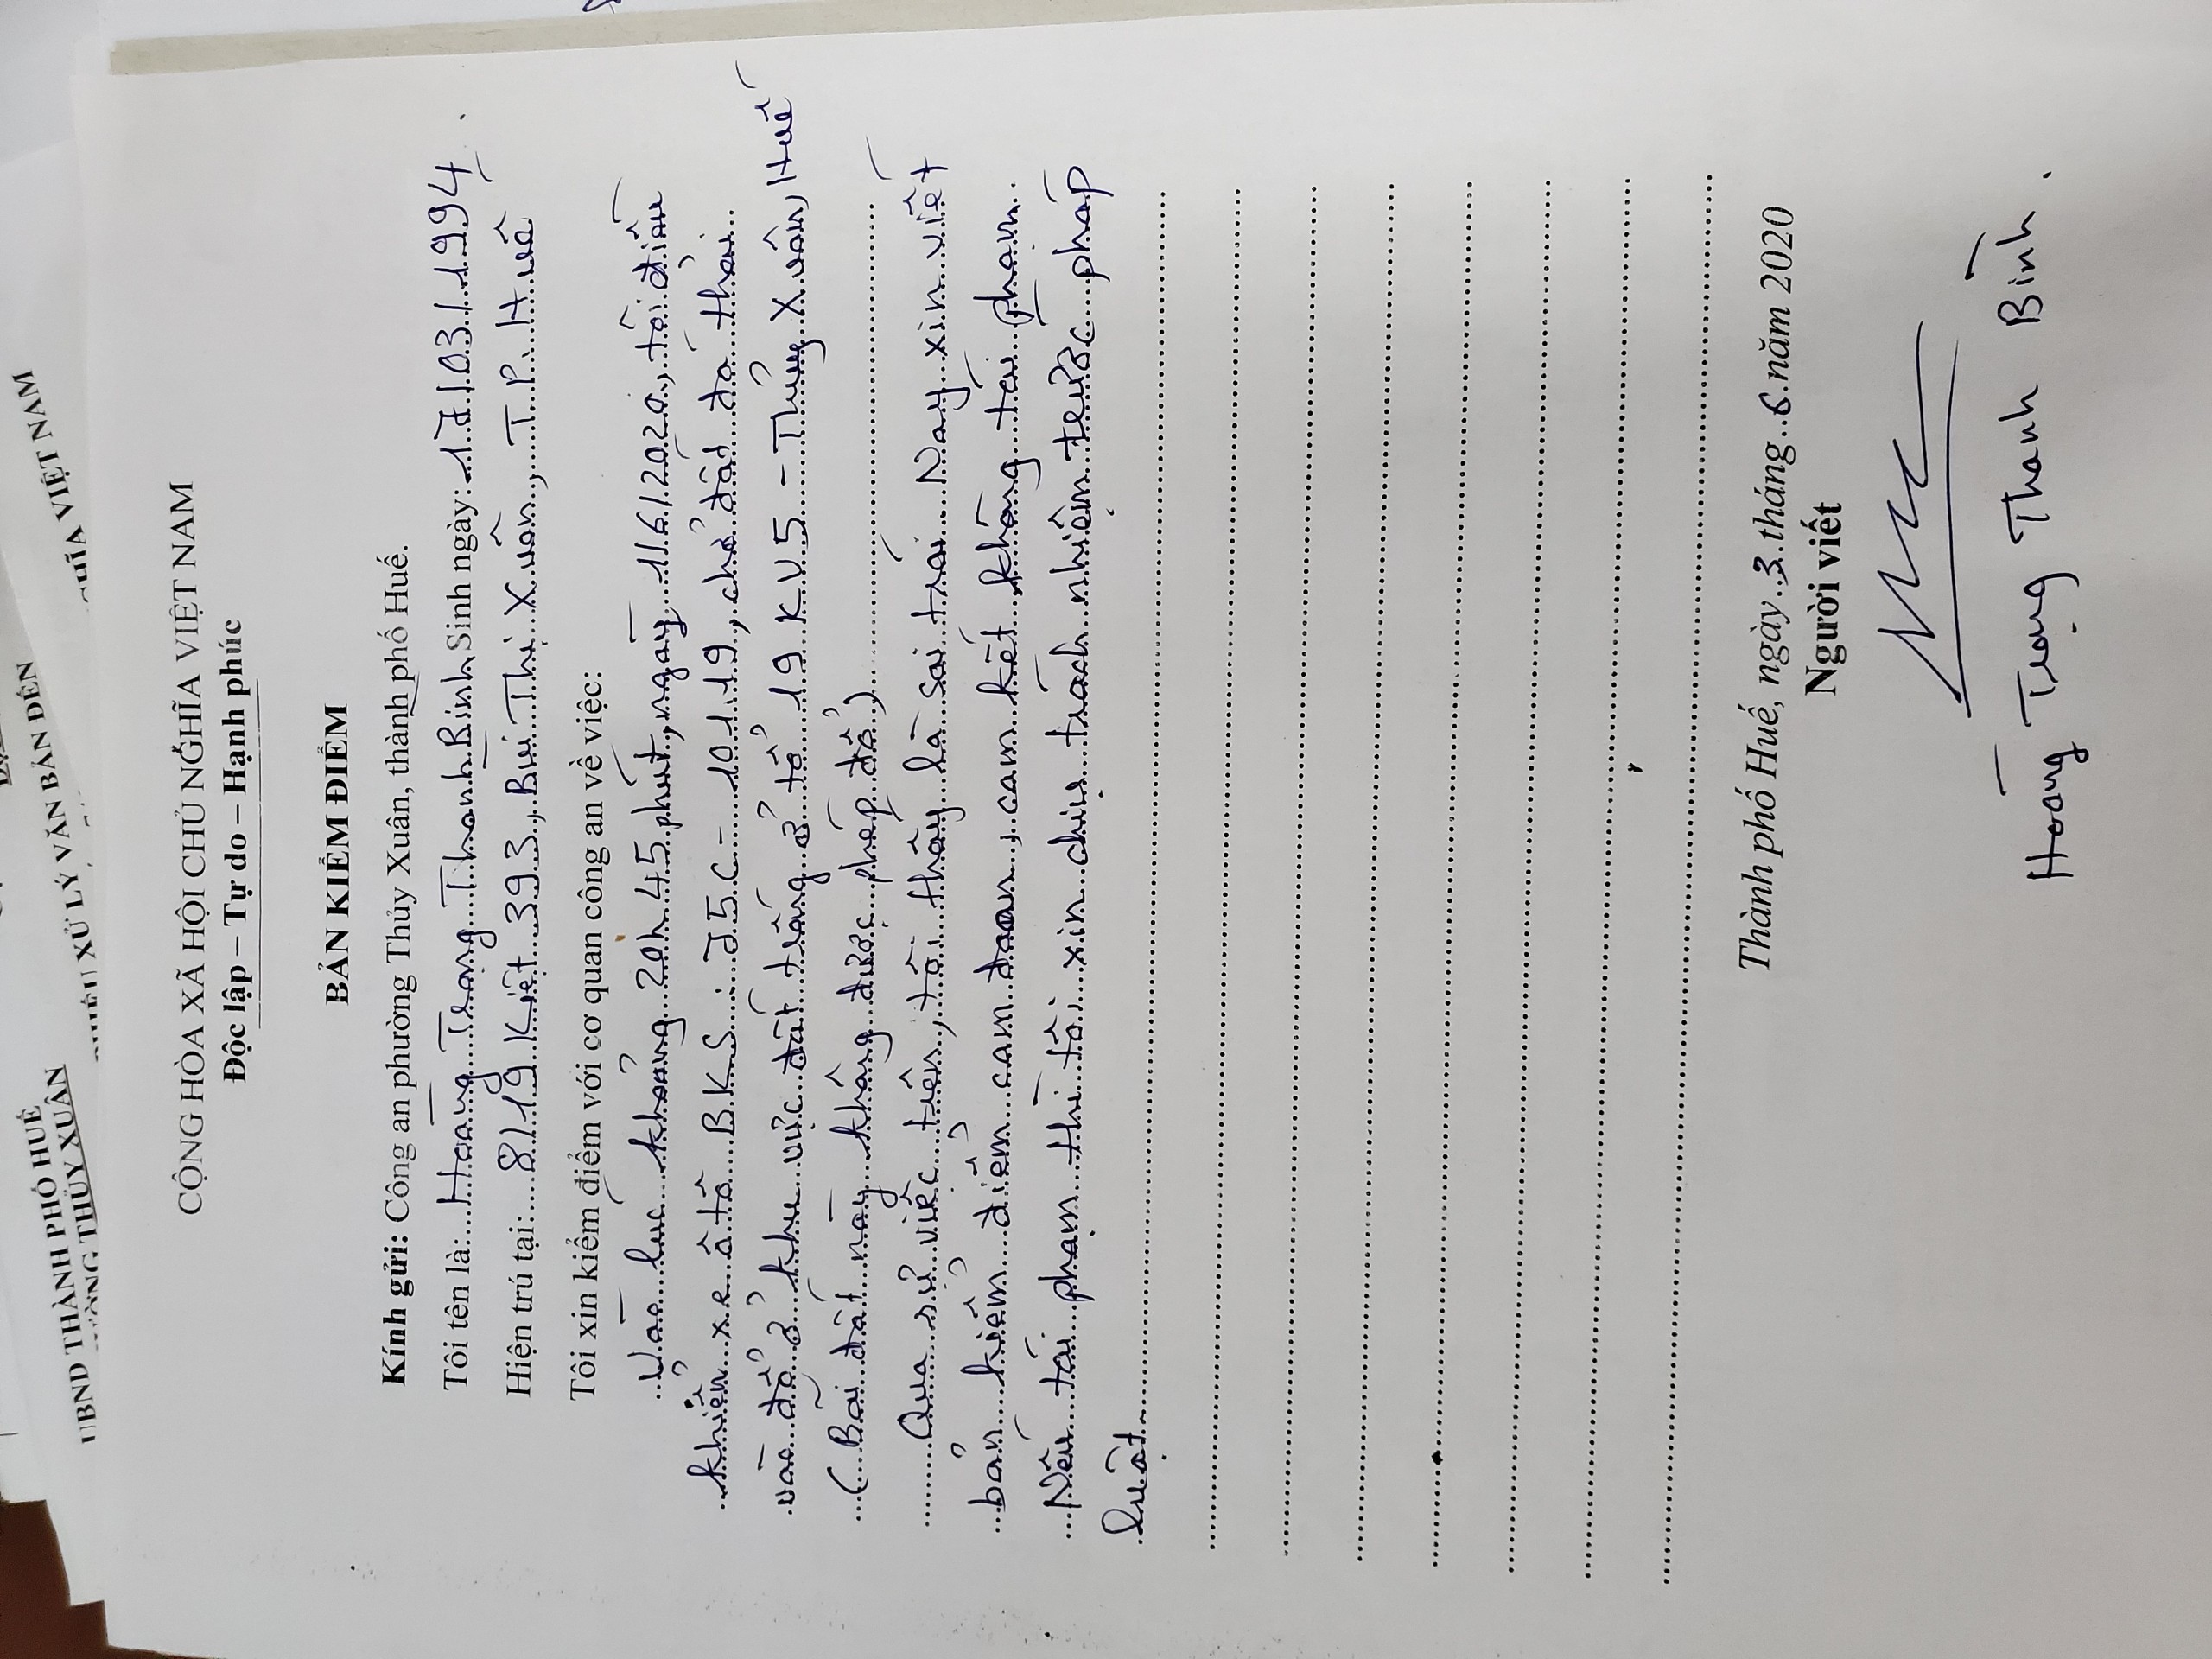 UBND THÀNH PHỐ HUẾ
THỦY XUÂN
XỬ LÝ VĂN BẢN ĐẾN
VIỆT NAM
CỘNG HÒA XÃ HỘI CHỦ NGHĨA VIỆT NAM
Độc lập – Tự do – Hạnh phúc
BẢN KIỂM ĐIỂM
Kính gửi: Công an phường Thủy Xuân, thành phố Huế.
Tôi tên là: Hoàng Trọng Thanh Bình Sinh ngày: 17/03/1994
Hiện trú tại: 8/19 Kiệt 393, Bùi Thị Xuân, T.P. Huế
Tôi xin kiểm điểm với cơ quan công an về việc:
Vào lúc khoảng 20h45 phút, ngày 1/6/2020, tôi điều
khiển xe ô tô BKS: 75C - 101.19, chở đất đá thải
vào đổ ở khu vực đất trống ở tổ 19 KV5 - Thủy Xuân, Huế
(Bãi đất này không được phép đổ)
Qua sự việc trên, tôi thấy là sai trái. Nay xin viết
bản kiểm điểm cam đoan, cam kết không tái phạm.
Nếu tái phạm thì tôi xin chịu trách nhiệm trước pháp
luật.
Thành phố Huế, ngày 3 tháng 6 năm 2020
Người viết
Hoàng Trọng Thanh Bình.